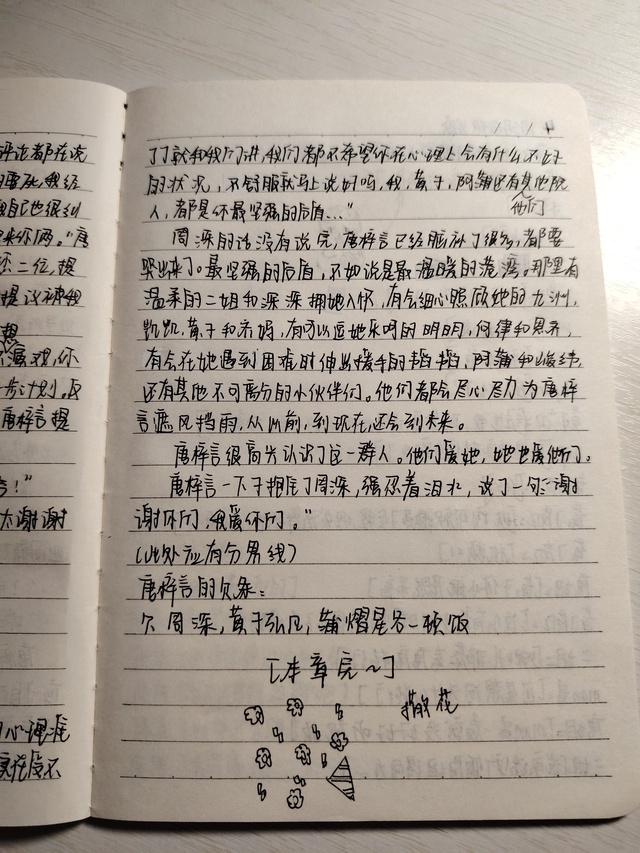 评论都在说
自己也很纠
来你俩。"唐
还二位,提
提议被我
想
不演戏,你
步计划。反
唐梓言提
言!"
太谢谢
心理准
实在反不
了就和我们讲,我们都不希望你在心理上会有什么不好
的状况,不舒服就马上说好吗,我,黄子,阿蒲还有其他院
人,都是你最坚强的后盾…"
他们
周深的话没有说完,唐梓言已经脑补了很多,都要
哭出来了。最坚强的后盾,不如说是最温暖的港湾。那里有
温柔的二姐和深深拥她入怀,有会细心照顾她的九洲,
凯凯,黄子和齐妈,有可以逗她乐呵的明明,何律和恩齐,
有会在她遇到困难时伸出援手的韬韬,阿蒲和峻纬,
还有其他不可离分的小伙伴们。他们都会尽心尽力为唐梓
言遮风挡雨,从以前,到现在,还会到未来。
唐梓言很高兴认识了这一群人。他们爱她,她也爱他们。
唐梓言一下子抱住了周深,强忍着泪水,说了一句:"谢
谢你们,我爱你们。"
(此处应有分界线)
唐梓言的欠条:
欠周深,黄子弘凡,蒲熠星各一顿饭
[本章完~]
撒花